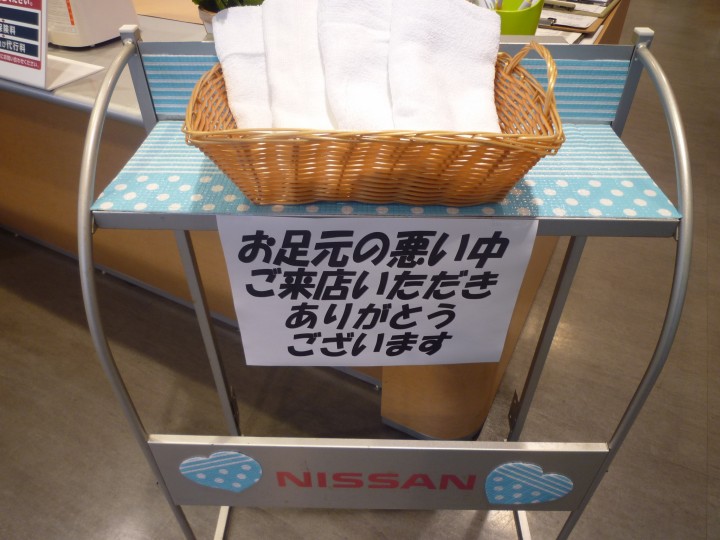 お足元の悪い中
ご来店いただき
ありがとう
ございます
NISSAN